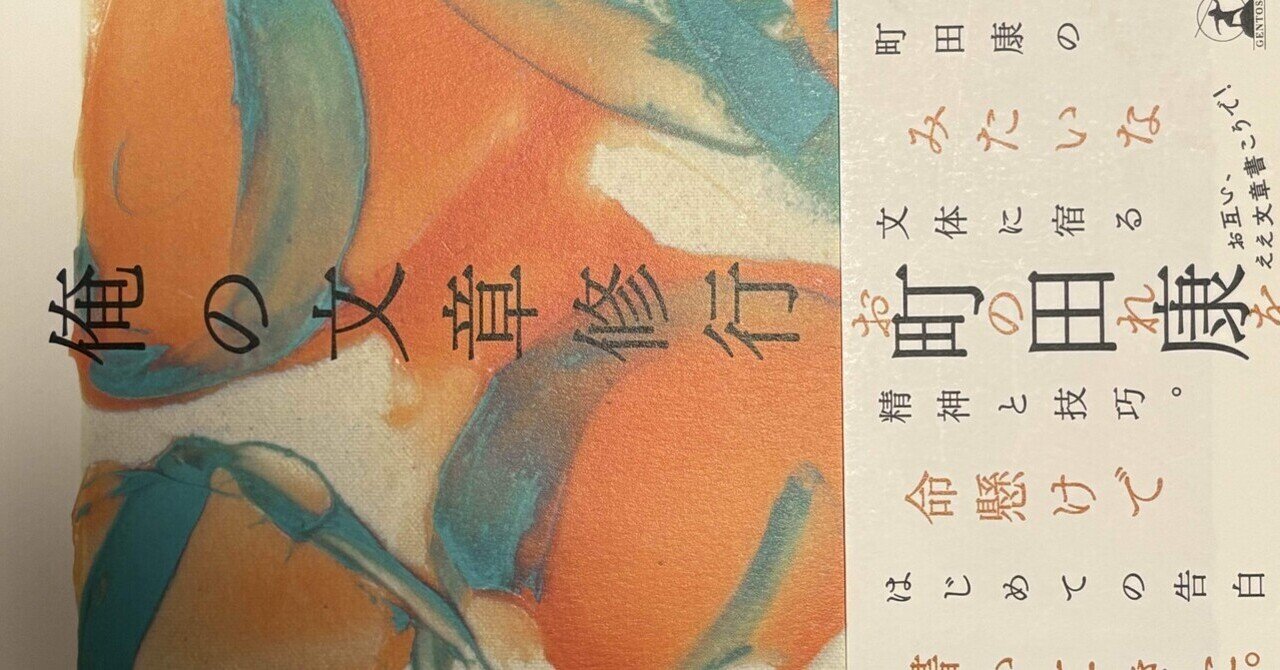 俺の文章修行
町田康の
みたいな
文体に宿る
町田康
おのれを
精神と技巧。
命懸けで
はじめての告白
お互い、
ええ文章書こう